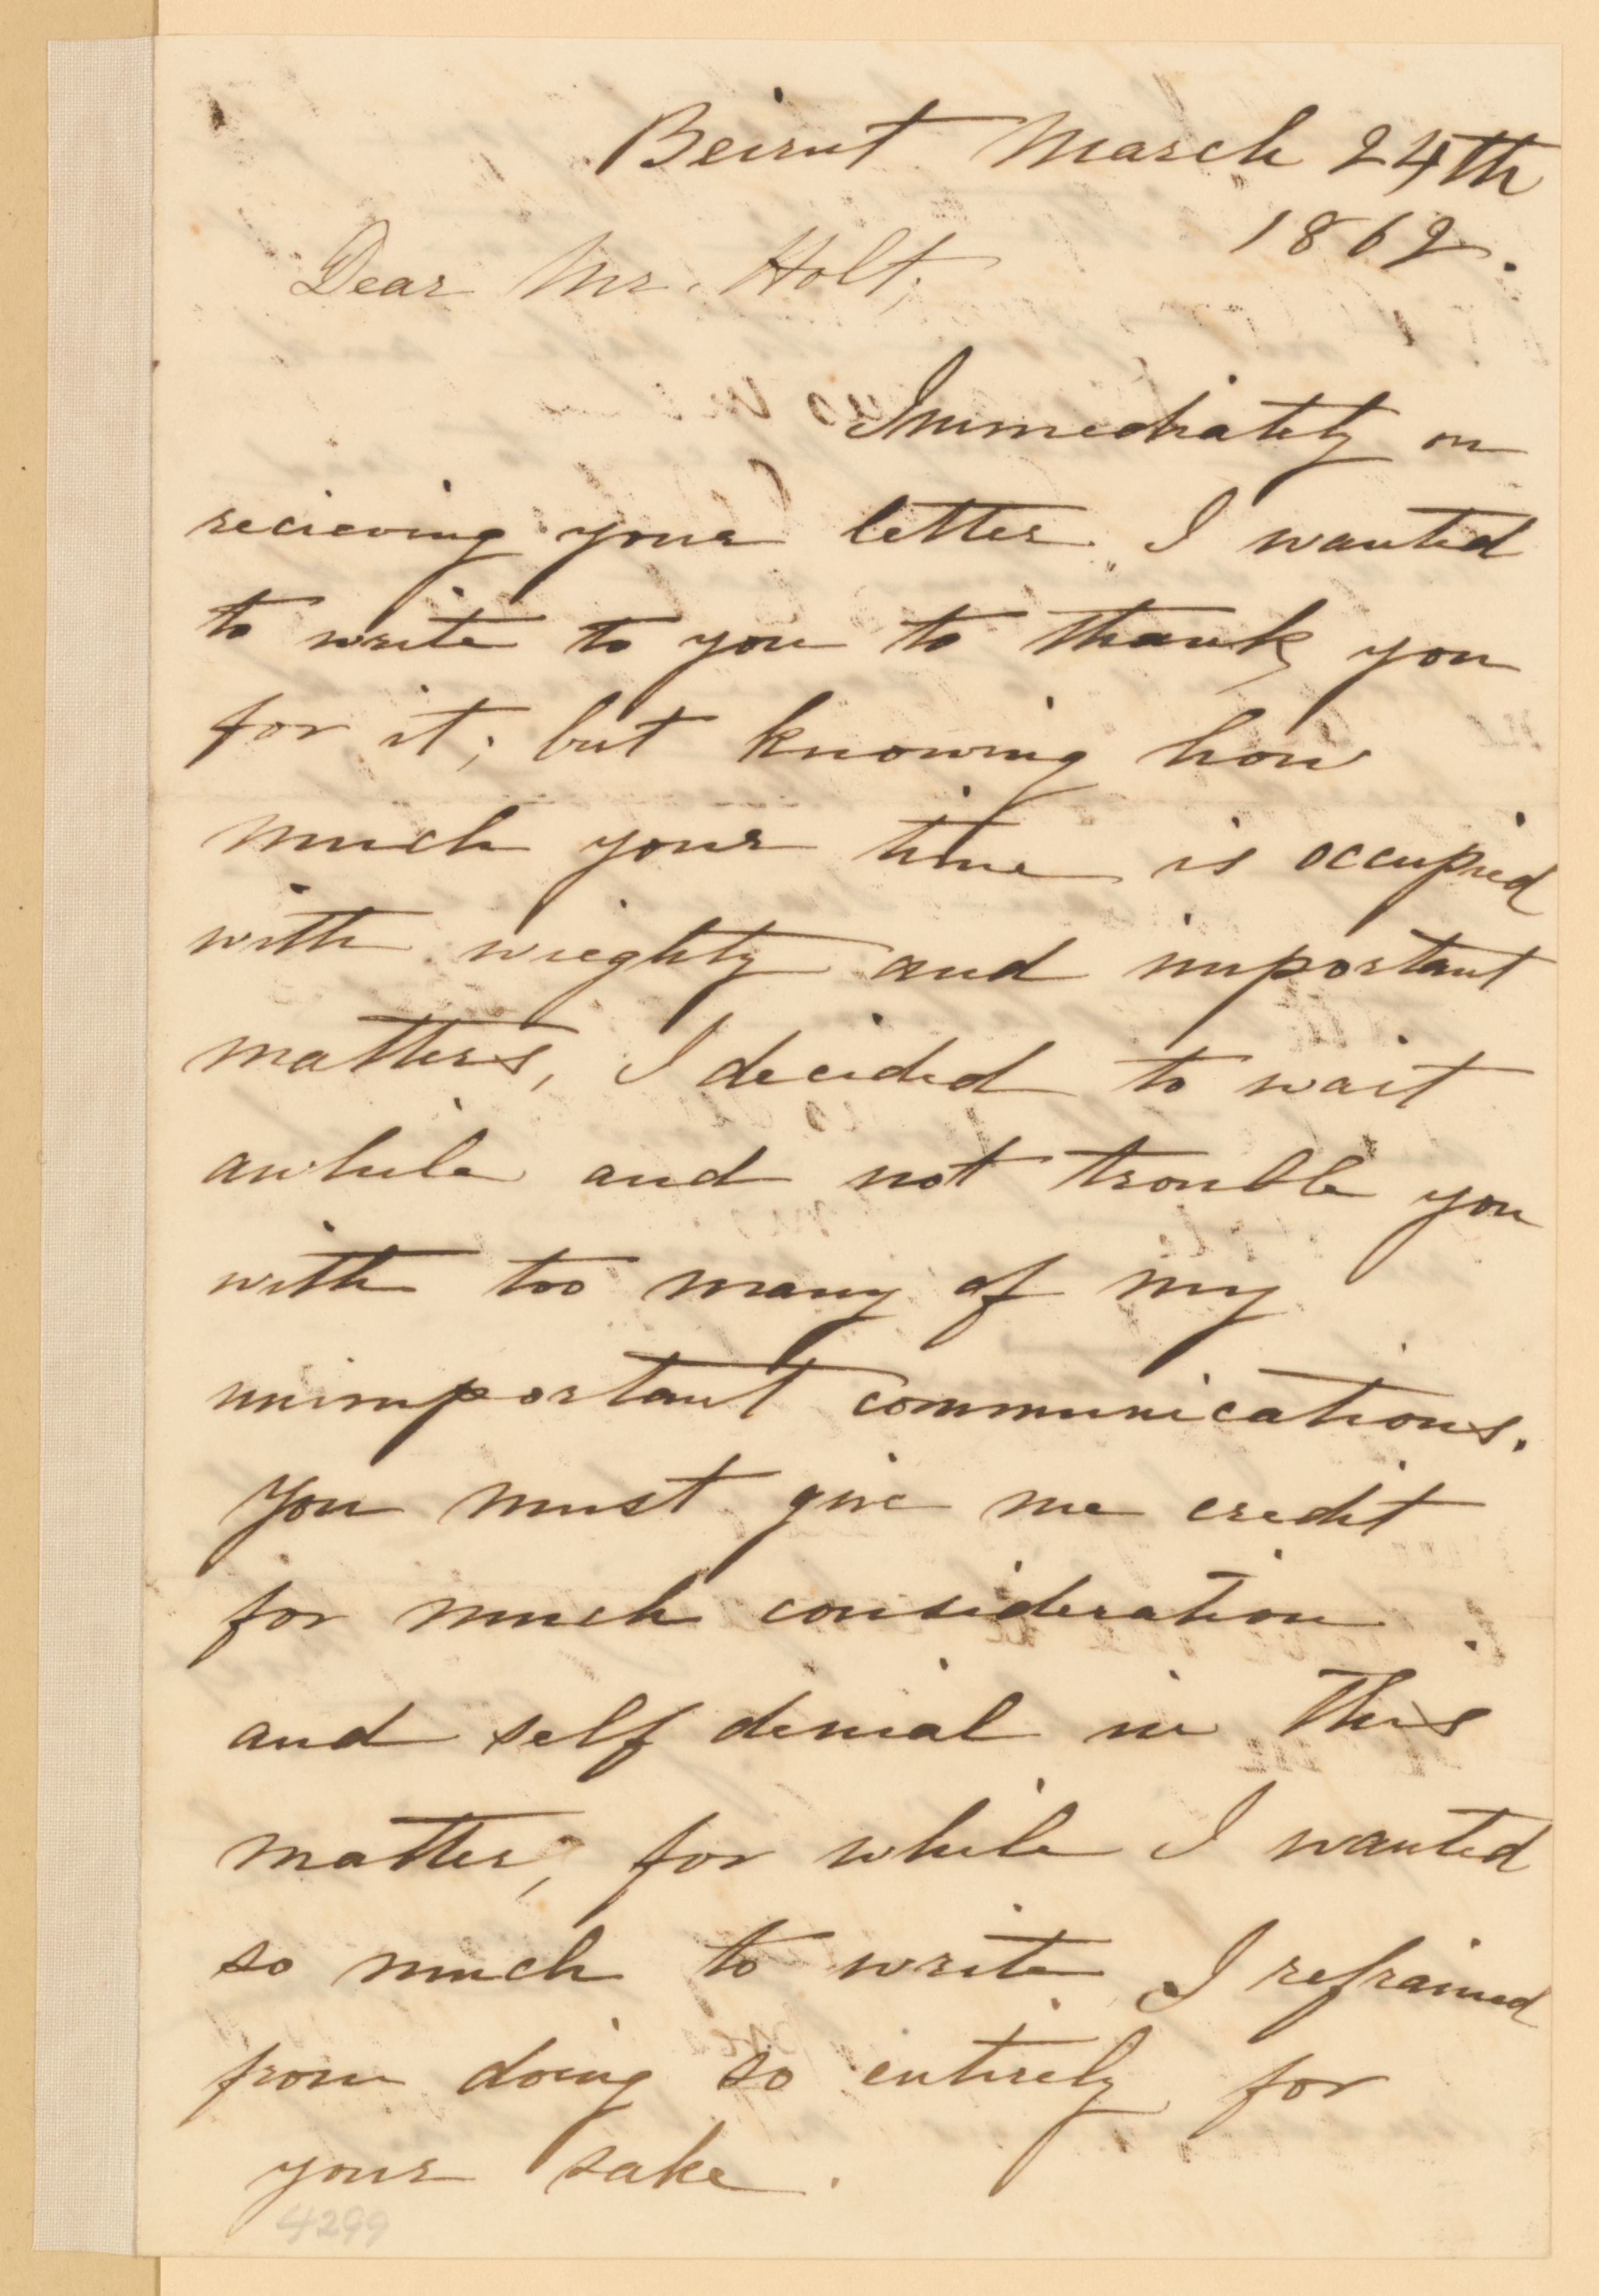 Beirut March 24th
1862.
Dear Mr. Holt,
Immediately on
recieving your letter I wanted
to write to you to thank you
for it; but knowing how
much your time is occupied
with wieghty and important
matters, I decided to wait
awhile and not trouble you
with too many of my
unimportant communications.
You must give me credit
for much consideration
and self denial in this
matter, for while I wanted
so much to write I refrained
from doing so entirely for
your sake.
4299